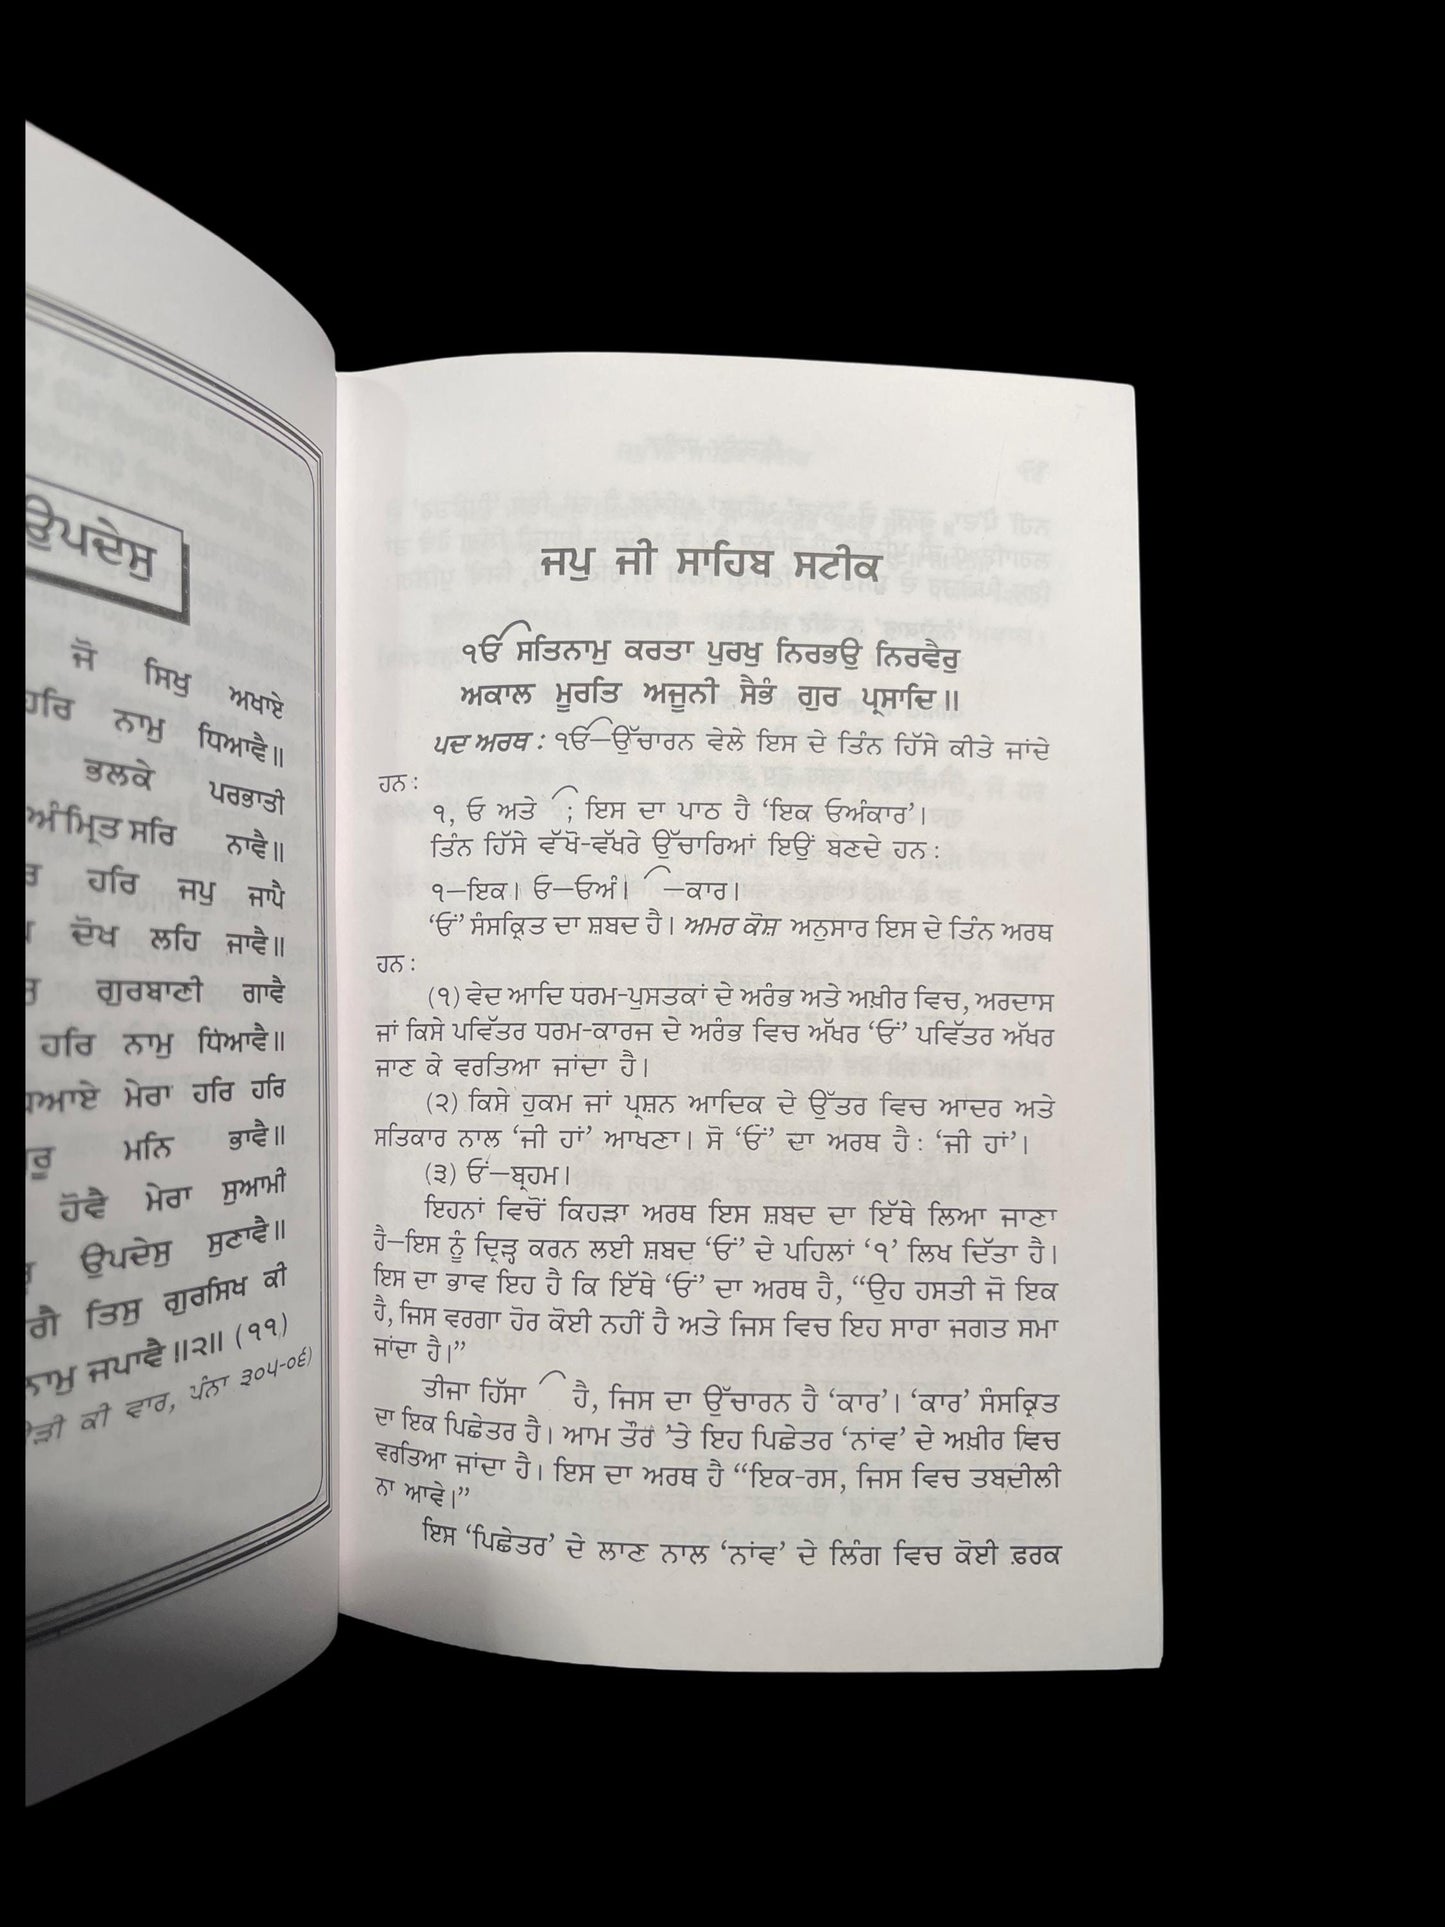 ਉਪਦੇਸੁ
ਜੋ ਸਿਖੁ ਅਖਾਏ
ਹਰਿ ਨਾਮੁ ਧਿਆਵੈ॥
ਭਲਕੇ ਪਰਭਾਤੀ
ਅੰਮ੍ਰਿਤ ਸਰਿ ਨਾਵੈ॥
ਹਰਿ ਜਪੁ ਜਾਪੈ
ਦੋਖ ਲਹਿ ਜਾਵੈ॥
ਗੁਰਬਾਣੀ ਗਾਵੈ
ਹਰਿ ਨਾਮੁ ਧਿਆਵੈ॥
ਮੇਰਾ ਹਰਿ ਹਰਿ
ਮਨਿ ਭਾਵੈ॥
ਹੋਵੈ ਮੇਰਾ ਸੁਆਮੀ
ਉਪਦੇਸੁ ਸੁਣਾਵੈ॥
ਤਿਸੁ ਗੁਰਸਿਖ ਕੀ
ਨਾਮੁ ਜਪਾਵੈ॥੨॥ (੧੧)
ਕੀ ਵਾਰ, ਪੰਨਾ ੩੦੫-੦੬)
ਜਪੁ ਜੀ ਸਾਹਿਬ ਸਟੀਕ
ੴ ਸਤਿਨਾਮੁ ਕਰਤਾ ਪੁਰਖੁ ਨਿਰਭਉ ਨਿਰਵੈਰੁ
ਅਕਾਲ ਮੂਰਤਿ ਅਜੂਨੀ ਸੈਭੰ ਗੁਰ ਪ੍ਰਸਾਦਿ॥
ਪਦ ਅਰਥ : ੴ—ਉੱਚਾਰਨ ਵੇਲੇ ਇਸ ਦੇ ਤਿੰਨ ਹਿੱਸੇ ਕੀਤੇ ਜਾਂਦੇ
ਹਨ :
੧, ਓ ਅਤੇ ⁀; ਇਸ ਦਾ ਪਾਠ ਹੈ ‘ਇਕ ਓਅੰਕਾਰ’।
ਤਿੰਨ ਹਿੱਸੇ ਵੱਖੋ-ਵੱਖਰੇ ਉੱਚਾਰਿਆਂ ਇਉਂ ਬਣਦੇ ਹਨ :
੧—ਇਕ। ਓ—ਓਅੰ। ⁀—ਕਾਰ।
‘ਓਂ’ ਸੰਸਕ੍ਰਿਤ ਦਾ ਸ਼ਬਦ ਹੈ। ਅਮਰ ਕੋਸ਼ ਅਨੁਸਾਰ ਇਸ ਦੇ ਤਿੰਨ ਅਰਥ
ਹਨ :
(੧) ਵੇਦ ਆਦਿ ਧਰਮ-ਪੁਸਤਕਾਂ ਦੇ ਅਰੰਭ ਅਤੇ ਅਖ਼ੀਰ ਵਿਚ, ਅਰਦਾਸ
ਜਾਂ ਕਿਸੇ ਪਵਿੱਤਰ ਧਰਮ-ਕਾਰਜ ਦੇ ਅਰੰਭ ਵਿਚ ਅੱਖਰ ‘ਓਂ’ ਪਵਿੱਤਰ ਅੱਖਰ
ਜਾਣ ਕੇ ਵਰਤਿਆ ਜਾਂਦਾ ਹੈ।
(੨) ਕਿਸੇ ਹੁਕਮ ਜਾਂ ਪ੍ਰਸ਼ਨ ਆਦਿਕ ਦੇ ਉੱਤਰ ਵਿਚ ਆਦਰ ਅਤੇ
ਸਤਿਕਾਰ ਨਾਲ ‘ਜੀ ਹਾਂ’ ਆਖਣਾ। ਸੋ ‘ਓਂ’ ਦਾ ਅਰਥ ਹੈ : ‘ਜੀ ਹਾਂ’।
(੩) ਓਂ—ਬ੍ਰਹਮ।
ਇਹਨਾਂ ਵਿਚੋਂ ਕਿਹੜਾ ਅਰਥ ਇਸ ਸ਼ਬਦ ਦਾ ਇੱਥੇ ਲਿਆ ਜਾਣਾ
ਹੈ—ਇਸ ਨੂੰ ਦ੍ਰਿੜ੍ਹ ਕਰਨ ਲਈ ਸ਼ਬਦ ‘ਓਂ’ ਦੇ ਪਹਿਲਾਂ ‘੧’ ਲਿਖ ਦਿੱਤਾ ਹੈ।
ਇਸ ਦਾ ਭਾਵ ਇਹ ਹੈ ਕਿ ਇੱਥੇ ‘ਓਂ’ ਦਾ ਅਰਥ ਹੈ, “ਉਹ ਹਸਤੀ ਜੋ ਇਕ
ਹੈ, ਜਿਸ ਵਰਗਾ ਹੋਰ ਕੋਈ ਨਹੀਂ ਹੈ ਅਤੇ ਜਿਸ ਵਿਚ ਇਹ ਸਾਰਾ ਜਗਤ ਸਮਾ
ਜਾਂਦਾ ਹੈ।”
ਤੀਜਾ ਹਿੱਸਾ ⁀ ਹੈ, ਜਿਸ ਦਾ ਉੱਚਾਰਨ ਹੈ ‘ਕਾਰ’। ‘ਕਾਰ’ ਸੰਸਕ੍ਰਿਤ
ਦਾ ਇਕ ਪਿਛੇਤਰ ਹੈ। ਆਮ ਤੌਰ ’ਤੇ ਇਹ ਪਿਛੇਤਰ ‘ਨਾਂਵ’ ਦੇ ਅਖ਼ੀਰ ਵਿਚ
ਵਰਤਿਆ ਜਾਂਦਾ ਹੈ। ਇਸ ਦਾ ਅਰਥ ਹੈ “ਇਕ-ਰਸ, ਜਿਸ ਵਿਚ ਤਬਦੀਲੀ
ਨਾ ਆਵੇ।”
ਇਸ ‘ਪਿਛੇਤਰ’ ਦੇ ਲਾਣ ਨਾਲ ‘ਨਾਂਵ’ ਦੇ ਲਿੰਗ ਵਿਚ ਕੋਈ ਫ਼ਰਕ